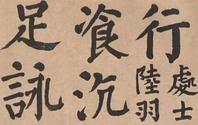 行處士
陸羽
飡沉
足詠